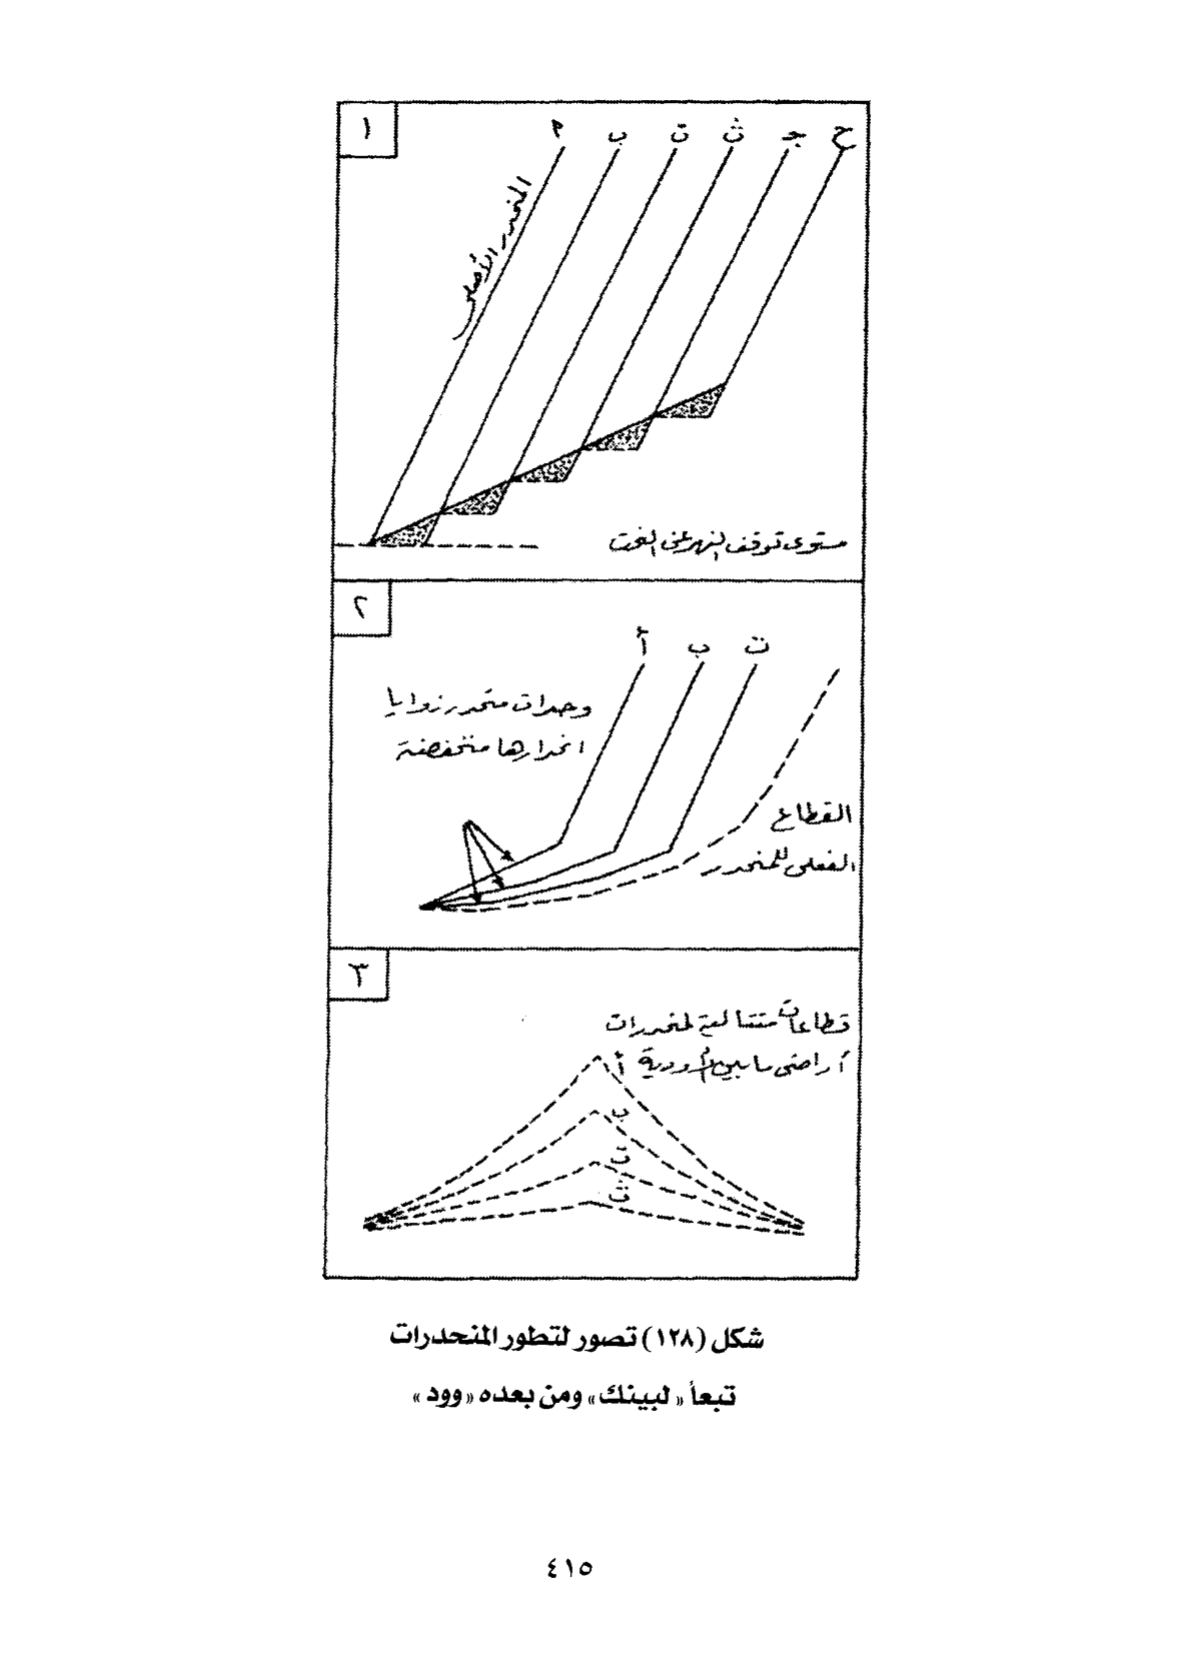 ١
أ ب ت ث جـ ح
المنحدر الأصلى
مستوى توقف النهر عن النحت
٢
أ ب ت
وحدات منحدر زوايا
انحدارها منخفضة
القطاع
الفعلى للمنحدر
٣
قطاعات متتالية لمنحدرات
أراضى ما بين الأودية
أ
ب
ت
ث
شكل (١٢٨) تصور لتطور المنحدرات
تبعاً « لبينك» ومن بعده «وود »
٤١٥